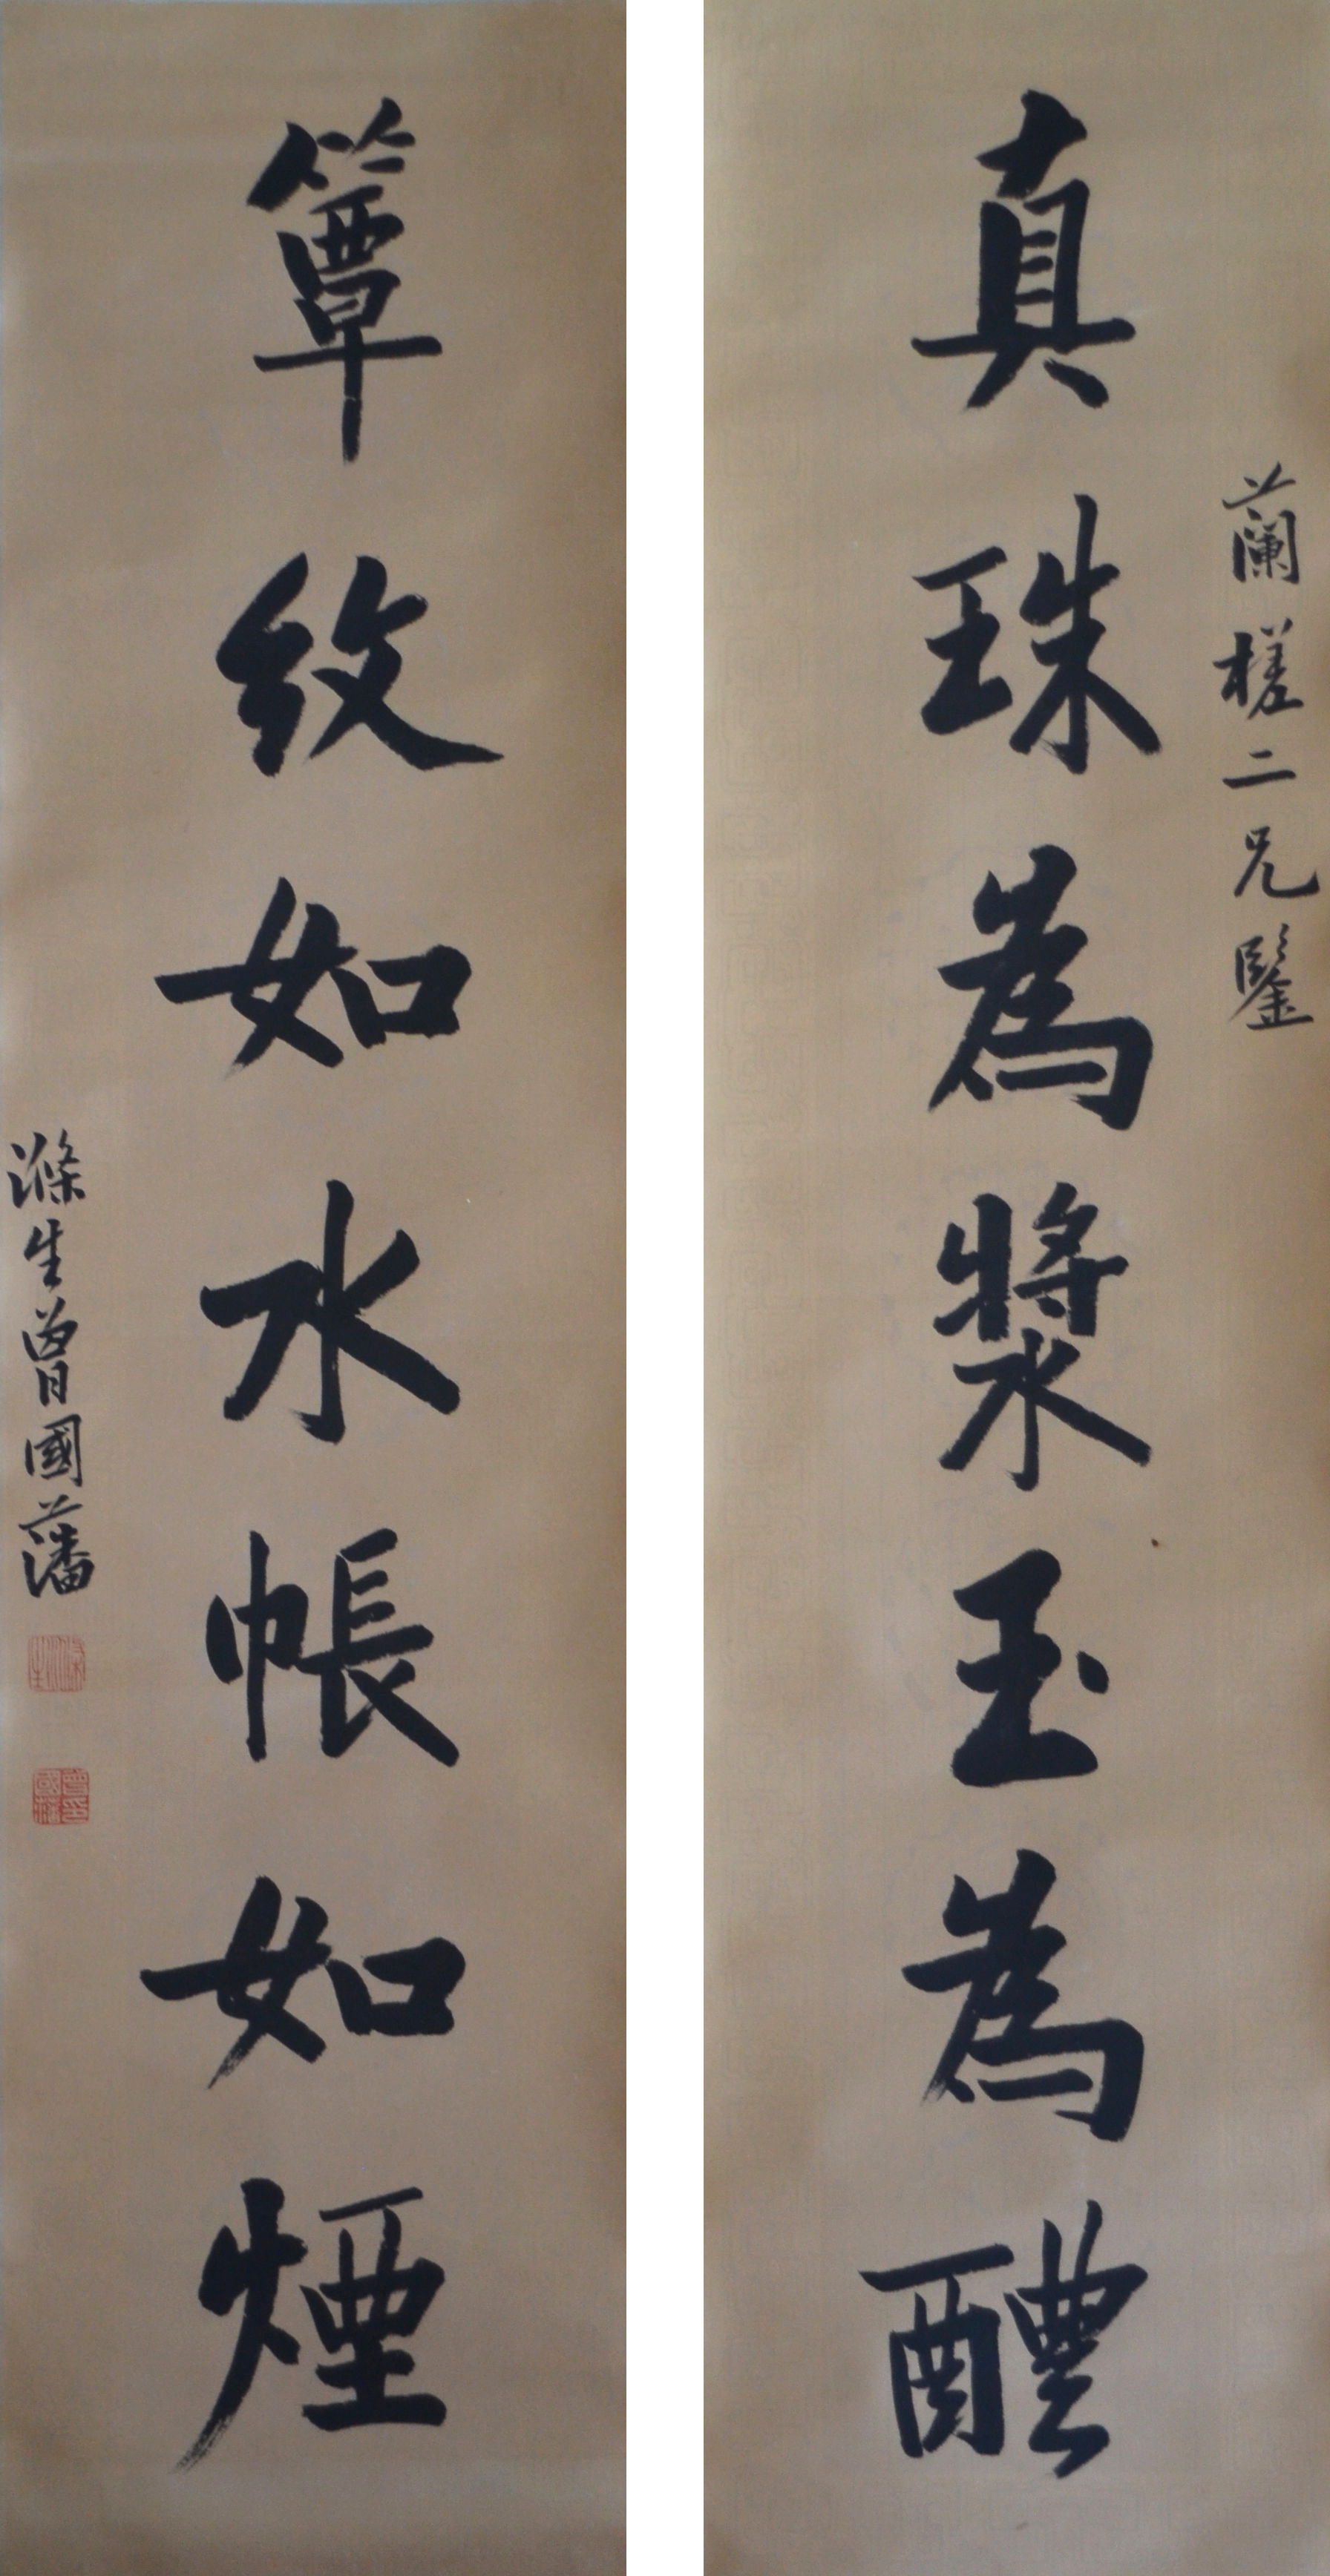 蘭槎二兄鑒
真珠為漿玉為醴
簟紋如水帳如煙
滌生曾國藩
滌生
曾國藩印